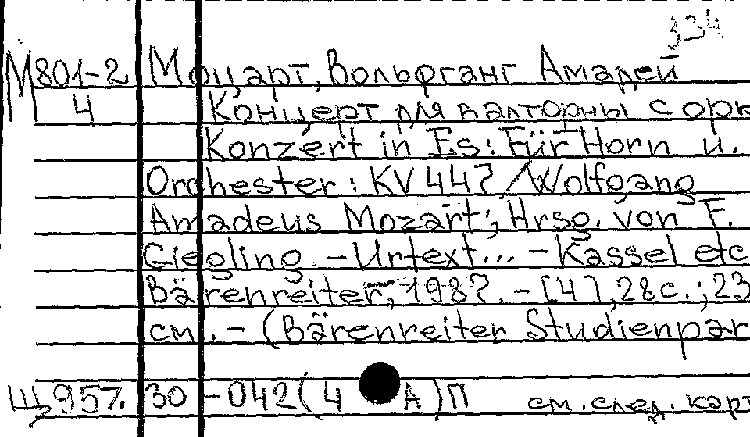 334
М801-2 Моцарт, Вольфганг Амадей
4 Концерт для валторны с орк
Konzert in Es: Für Horn u.
Orchester: KV 447 / Wolfgang
Amadeus Mozart; Hrsg. von F.
Giegling. - Urtext... - Kassel etc
Bärenreiter, 1987. - [4], 28 с.; 23
см. - (Bärenreiter Studienpar
Щ957.30-042(4 А)П см. след. карт